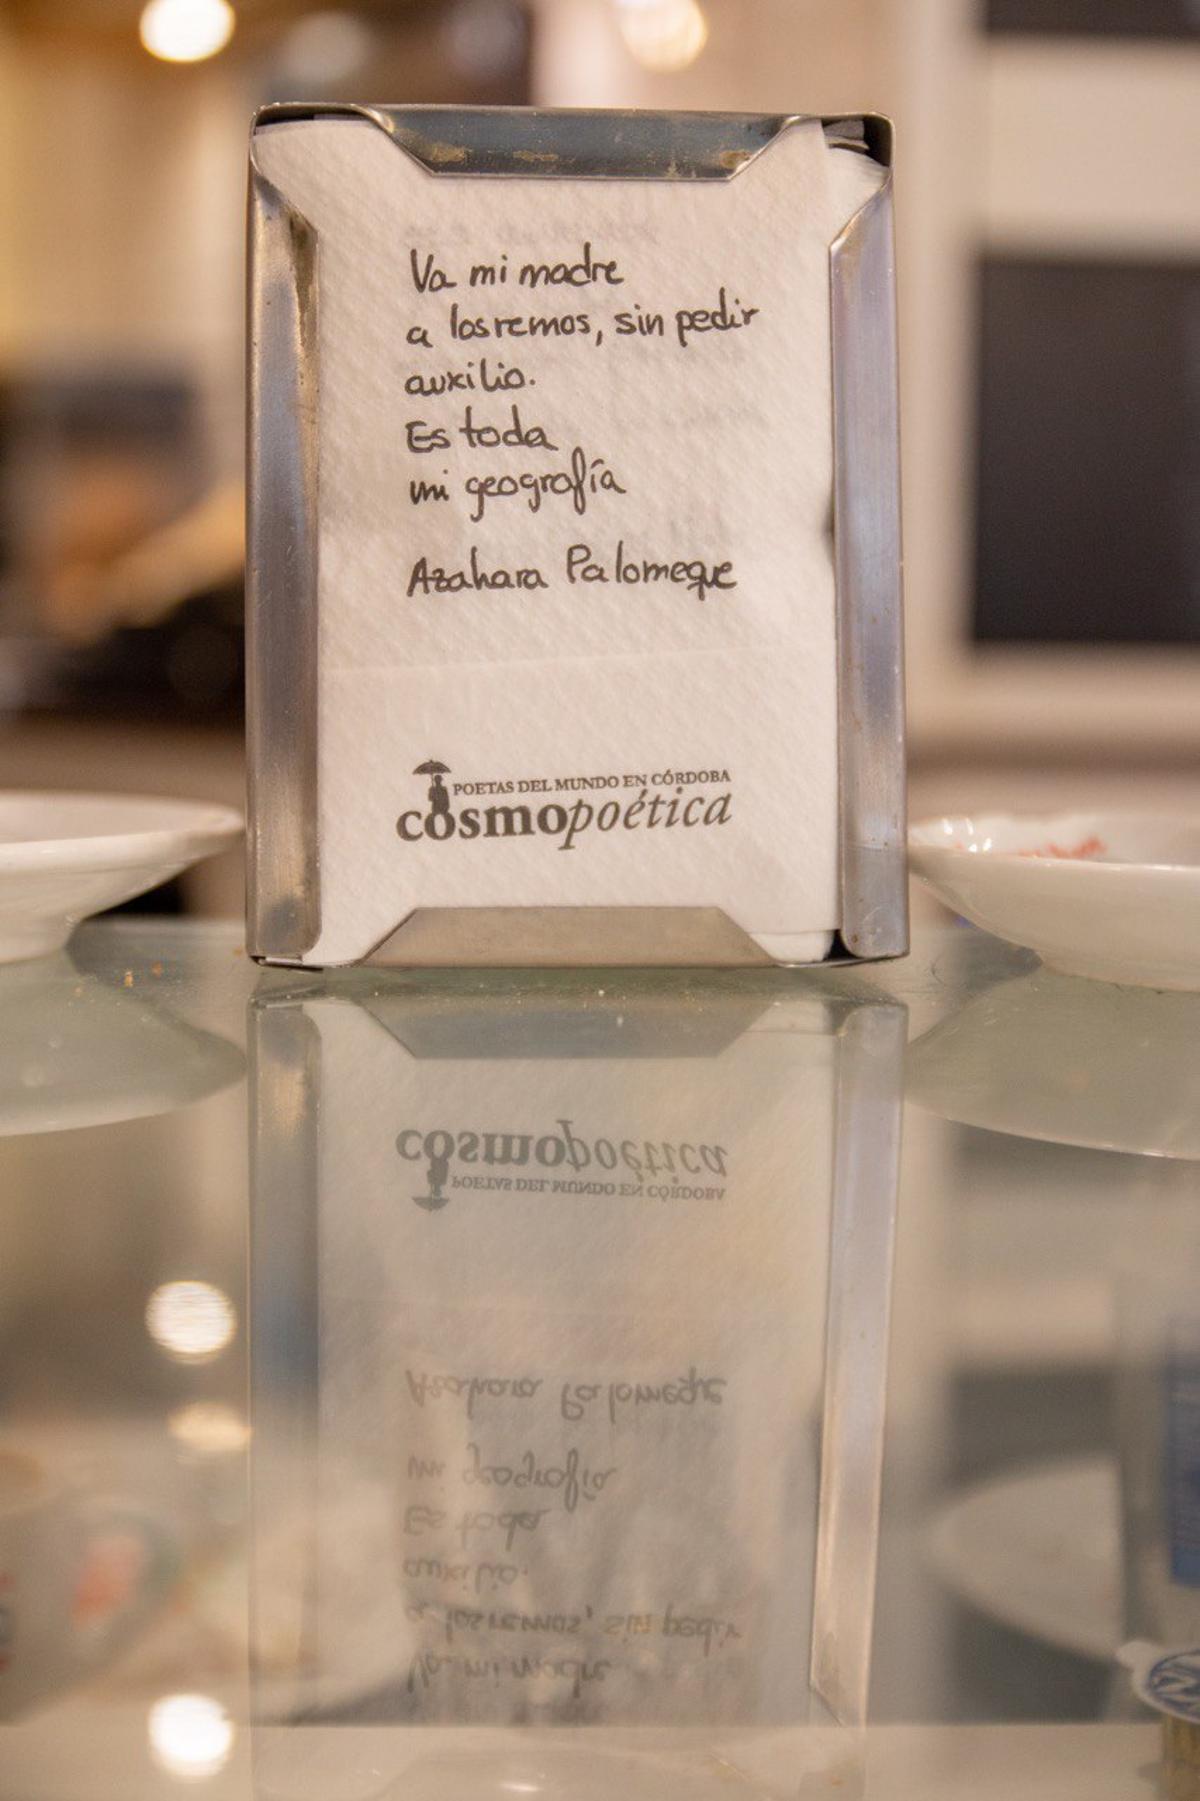 Va mi madre
a los remos, sin pedir
auxilio.
Es toda
mi geografía
Azahara Palomeque
POETAS DEL MUNDO EN CÓRDOBA
cosmopoética